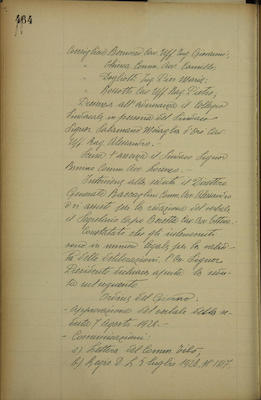 464
Consigliere Bonardi Cav. Uff. Ing. Giovanni;
" Chiesa Comm. Avv. Camillo;
" Dogliotti Sig. Pier Maria;
" Rossotto Cav. Uff. Rag. Pietro,
Presenzia all'adunanza il Collegio
Sindacale in persona del Sindaco
Signor Salamano Cav.
Uff. Rag. Alessandro.-
Scusa l'assenza il Sindaco Signor
Comm. Avv. Lorenzo.-
Interviene alla seduta il Direttore
Generale Comm. Avv. Alessandro
ed assiste per la redazione del verbale
il Segretario Capo Cav. Avv. Ettore.
Constatato che gli intervenuti
sono in numero legale per la validi-
tà delle deliberazioni, l'On. Signor
Presidente dichiara aperta la sedu-
ta sul seguente
Ordine del Giorno:
- Approvazione del verbale della se-
duta 7 Agosto 1928.-
- Comunicazioni:
a) Lettera del
b) Regio D. L. 3 luglio 1928, N° 1817.